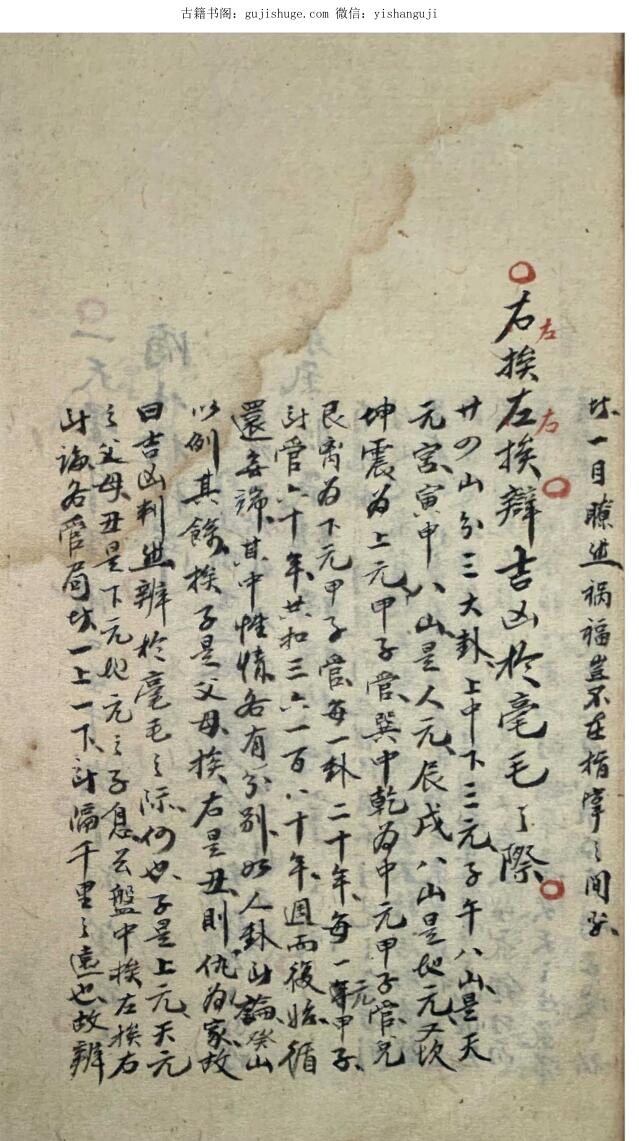 古籍书阁：gujishuge.com 微信：yishanguji
一目瞭然祸福豈不在指掌之間
右挨左挨辯吉凶於毫毛之際
左 右
廿四山分三大卦上中下三元子午八山是天
元宮寅申八山是人元辰戌八山是地元又坎
坤震為上元甲子管巽中乾為中元甲子管兌
艮离為下元甲子管每一卦二十年每一元甲子
管六十年共和三六一百八十年週而後始循
還無端其中性情各有分別如人卦論癸山
以例其餘挨子是父母挨右是丑則仇為家故
曰吉凶判然辨於毫毛之际何也子是上元天元
之父母丑是下元地元之子息公盤中挨左挨右
論各管局一上一下隔千里之遠也故辨